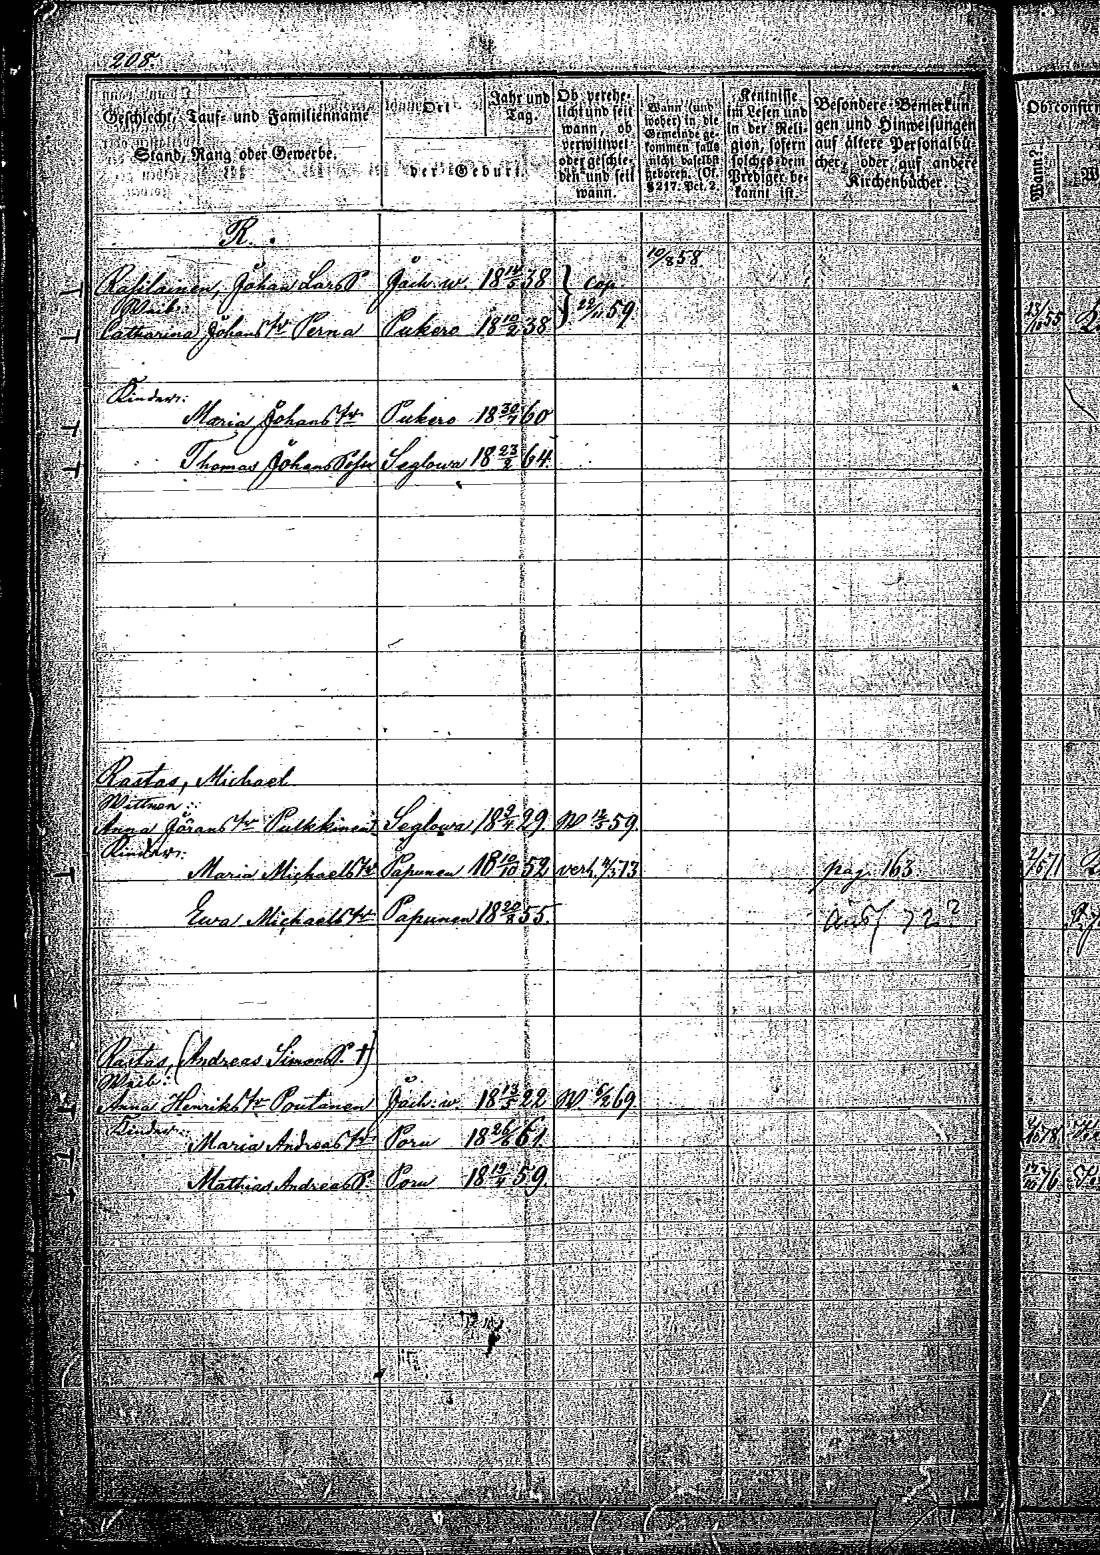 208.
Geschlecht, Tauf- und Familienname
Stand, Rang oder Gewerbe.
Ort
Jahr und Tag.
der Geburt.
Ob verehelicht und seit wann, ob verwittwet oder geschieden und seit wann.
Wann (und woher) in die Gemeinde gekommen falls nicht daselbst geboren. (Cf. § 217. Pct. 2.
Kentnisse im Lesen und in der Religion, sofern solches dem Prediger bekannt ist.
Besondere Bemerkungen und Hinweisungen auf ältere Personalbücher, oder auf andere Kirchenbücher.
Wann?
R.
10/8 58
Johan Lars S. Jäck. w. 18 38 cop.
Weib:
Catharina Johans tr Perna Pukero 18 10/2 38 59 55
Kinder:
Maria Johans tr Pukero 18 60
Thomas Johans Sohn Seglowa 18 23/2 64.
Rastas, Michael
Wittwe:
Anna Jörans tr Pulkkinen Seglowa 18 29 W 59.
Kinder:
Maria Michaels tr Papunen 18 10/10 52 verh. 73 pag. 163
Ewa Michaels tr Papunen 18 55.
Rastas, (Andreas Simons S. †)
Weib:
Anna Henriks tr Poutanen Jäck. w. 18 22 W 69
Kinder:
Maria Andreas tr Poru 18 61.
Mathias Andreas S. Poru 18 59. 76